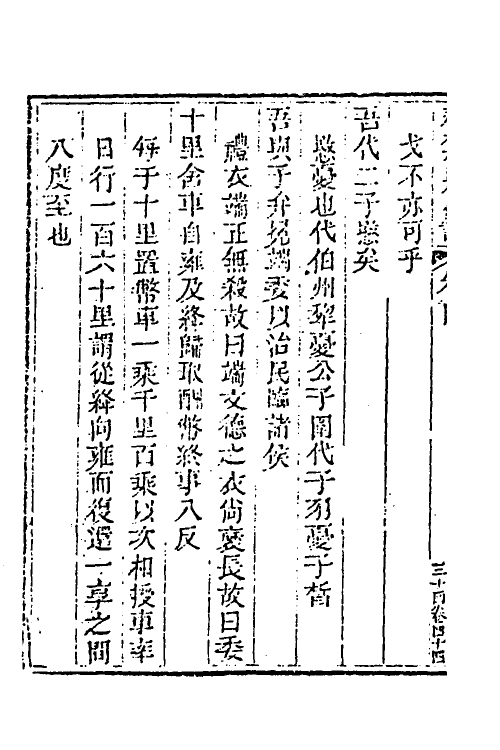 戈不亦可乎
吾代二子愍矣
愍憂也代伯州犂憂公子圍代子羽憂子晳
吾與子弁冕端委以治民臨諸侯
禮衣端正無殺故曰端文德之衣尙襃長故曰委
十里舍車自雍及絳歸取酬幣終事八反
每于十里置幣車一乘千里百乘以次相授車率
日行一百六十里謂從絳向雍而復還一享之間
八度至也